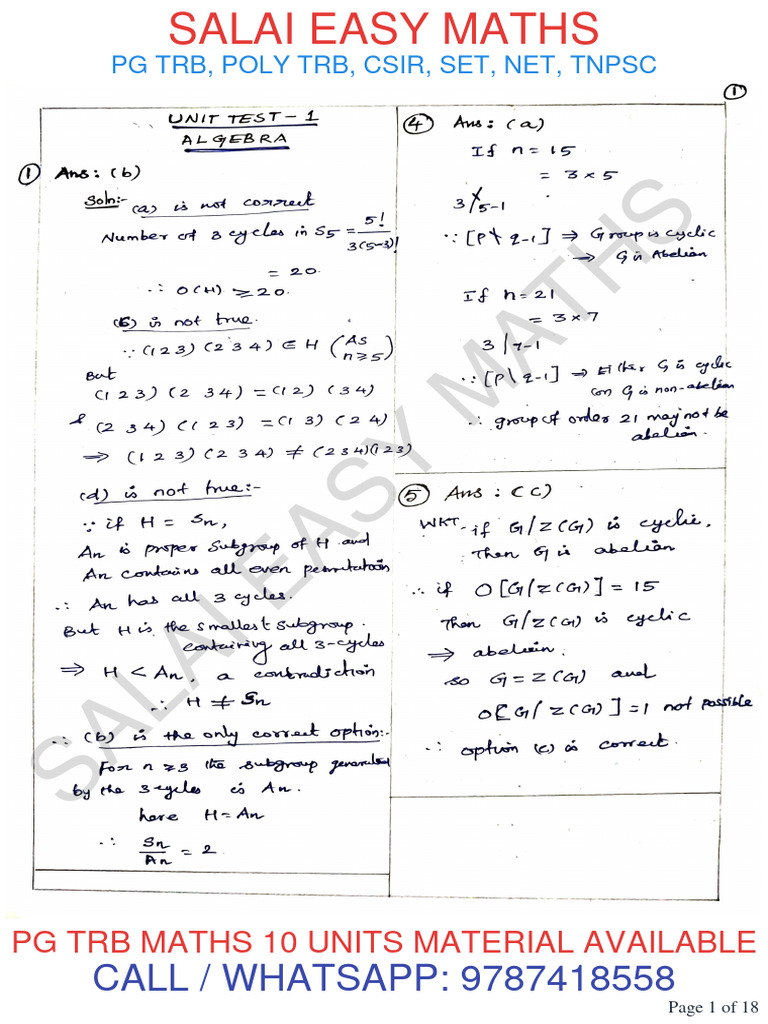 SALAI EASY MATHS
PG TRB, POLY TRB, CSIR, SET, NET, TNPSC
①
UNIT TEST - 1
ALGEBRA
① Ans: (b)
Soln:- (a) is not correct
Number of 3 cycles in S5 = 5! / 3(5-3)!
= 20.
∴ O(H) ≥ 20.
(c) is not true.
∵ (1 2 3) (2 3 4) ∈ H (As n ≥ 5)
But
(1 2 3) (2 3 4) = (1 2) (3 4)
& (2 3 4) (1 2 3) = (1 3) (2 4)
⇒ (1 2 3) (2 3 4) ≠ (2 3 4)(1 2 3)
(d) is not true:-
∵ if H = Sn,
An is proper subgroup of H and
An contains all even permutation
∴ An has all 3 cycles.
But H is the smallest subgroup.
containing all 3-cycles
⇒ H < An, a contradiction
∴ H ≠ Sn
∴ (b) is the only correct option:-
For n ≥ 3 the subgroup generated
by the 3-cycles is An.
here H = An
∴ Sn / An = 2
④ Ans: (a)
If n = 15
= 3 × 5
3 ∤ 5-1
∵ [P ∤ q-1] ⇒ Group is cyclic
⇒ G is Abelian
If n = 21
= 3 × 7
3 / 7-1
∵ [P \ q-1] ⇒ Either G is cyclic
(or) G is non-abelian
∴ group of order 21 may not be
abelian.
⑤ Ans: (c)
WKT- if G/Z(G) is cyclic,
Then G is abelian
∴ if O[G/Z(G)] = 15
Then G/Z(G) is cyclic
⇒ abelian.
so G = Z(G) and
O[G/Z(G)] = 1 not possible
∴ option (c) is correct.
SALAI EASY MATHS
PG TRB MATHS 10 UNITS MATERIAL AVAILABLE
CALL / WHATSAPP: 9787418558
Page 1 of 18